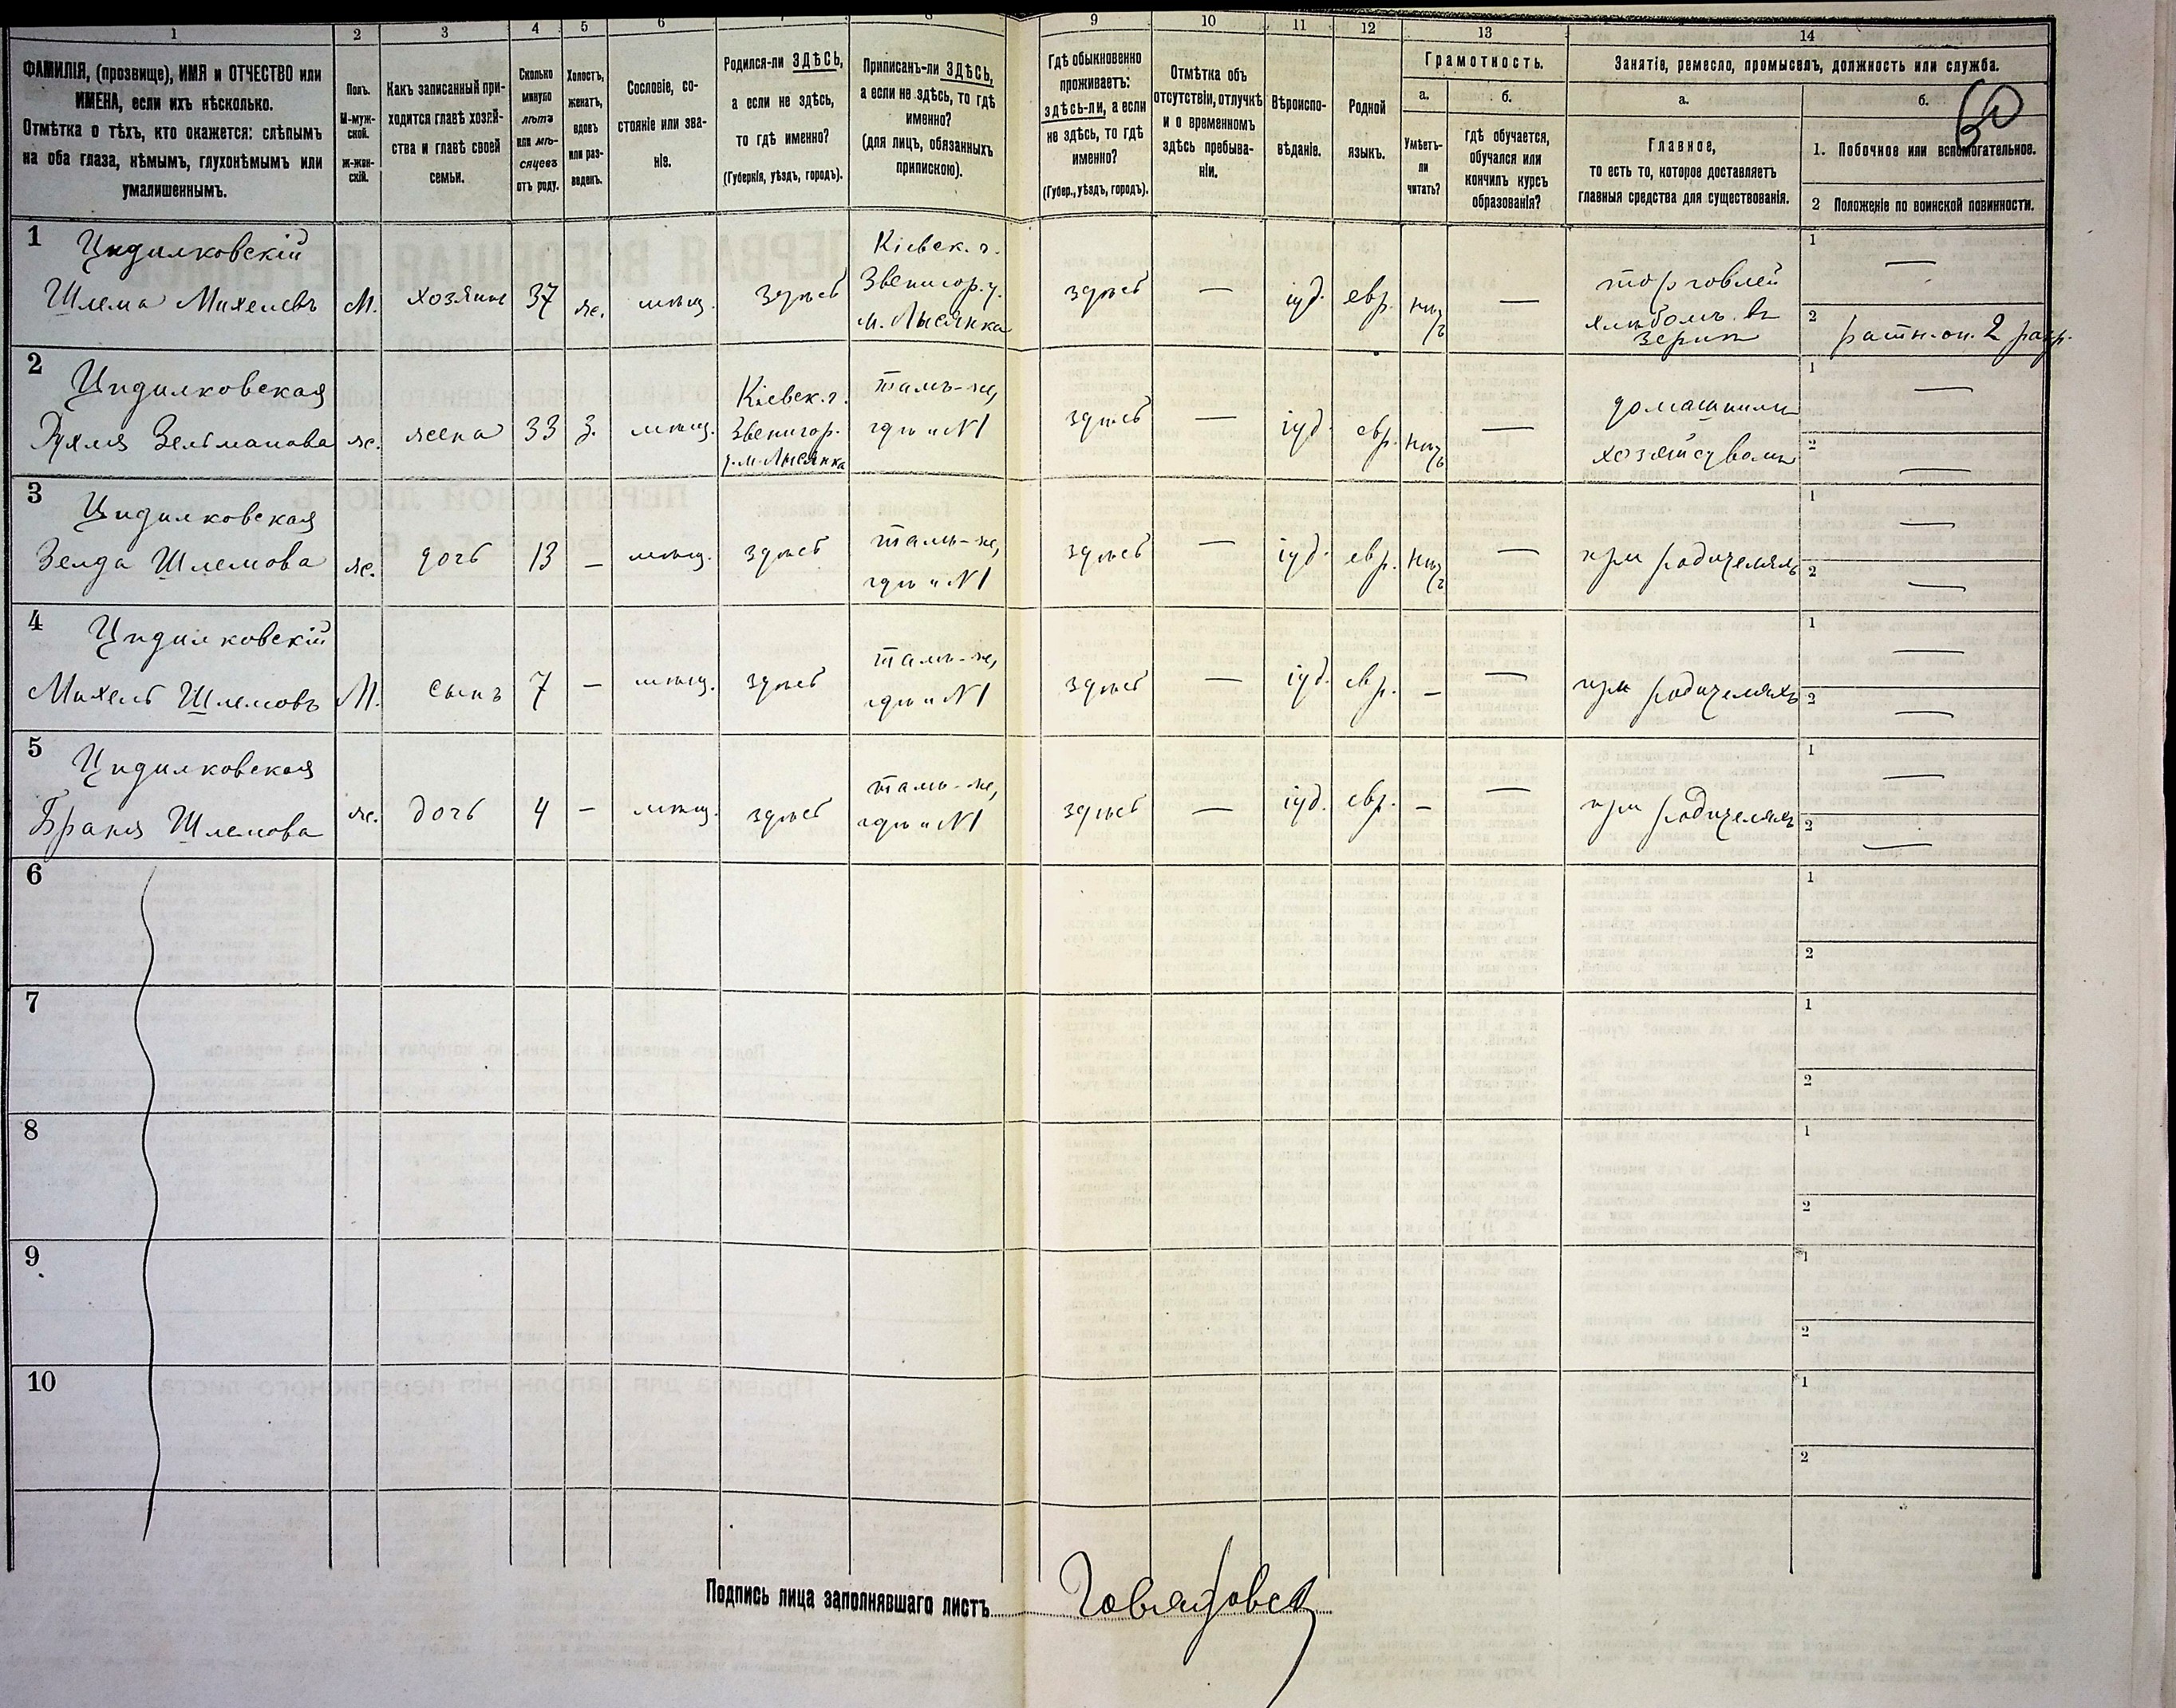 1 2 3 4 5 6 7 8 9 10 11 12 13 14
ФАМИЛІЯ, (прозвище), ИМЯ и ОТЧЕСТВО или
ИМЕНА, если ихъ нѣсколько.
Отмѣтка о тѣхъ, кто окажется: слѣпымъ
на оба глаза, нѣмымъ, глухонѣмымъ или
умалишеннымъ.
Полъ.
М-муж-
ской.
Ж-жен-
скій.
Какъ записанный при-
ходится главѣ хозяй-
ства и главѣ своей
семьи.
Сколько
минуло
лѣтъ
или мѣ-
сяцевъ
отъ роду.
Холостъ,
женатъ,
вдовъ
или раз-
веденъ.
Сословіе, со-
стояніе или зва-
ніе.
Родился-ли ЗДѢСЬ,
а если не здѣсь,
то гдѣ именно?
(Губернія, уѣздъ, городъ).
Приписанъ-ли ЗДѢСЬ,
а если не здѣсь, то гдѣ
именно?
(для лицъ, обязанныхъ
припискою).
Гдѣ обыкновенно
проживаетъ:
здѣсь-ли, а если
не здѣсь, то гдѣ
именно?
(Губер., уѣздъ, городъ).
Отмѣтка объ
отсутствіи, отлучкѣ
и о временномъ
здѣсь пребыва-
ніи.
Вѣроиспо-
вѣданіе.
Родной
языкъ.
Грамотность.
а.
Умѣетъ-
ли
читать?
б.
Гдѣ обучается,
обучался или
кончилъ курсъ
образованія?
Занятіе, ремесло, промыселъ, должность или служба.
а.
Главное,
то есть то, которое доставляетъ
главныя средства для существованія.
б.
60
1. Побочное или вспомогательное.
2 Положеніе по воинской повинности.
1 Цидилковскій
Шлема Михелевъ М. хозяинъ 37 ж. мѣщ. здѣсь
Кіевск. г.
Звенигор. у.
м. Лысянка
здѣсь — іуд. евр. нѣтъ —
торговлей
хлѣбомъ въ
зернѣ
1 —
2 ратн. оп. 2 разр.
2 Цидилковская
Рухля Зельманова ж. жена 33 З. мѣщ.
Кіевск. г.
Звенигор.
у. м. Лысянка
тамъ-же,
гдѣ и №1
здѣсь — іуд. евр. нѣтъ —
домашнимъ
хозяйствомъ
1 —
2 —
3 Цидилковская
Зелда Шлемова ж. дочь 13 – мѣщ. здѣсь
тамъ-же,
гдѣ и №1
здѣсь — іуд. евр. нѣтъ —
при родителяхъ
1 —
2 —
4 Цидилковскій
Михель Шлемовъ М. сынъ 7 – мѣщ. здѣсь
тамъ-же,
гдѣ и №1
здѣсь — іуд. евр. – —
при родителяхъ
1 —
2 —
5 Цидилковская
Браня Шлемова ж. дочь 4 – мѣщ. здѣсь
тамъ-же,
гдѣ и №1
здѣсь — іуд. евр. – —
при родителяхъ
1 —
2 —
6
1
2
7
1
2
8
1
2
9
1
2
10
1
2
Подпись лица заполнявшаго листъ